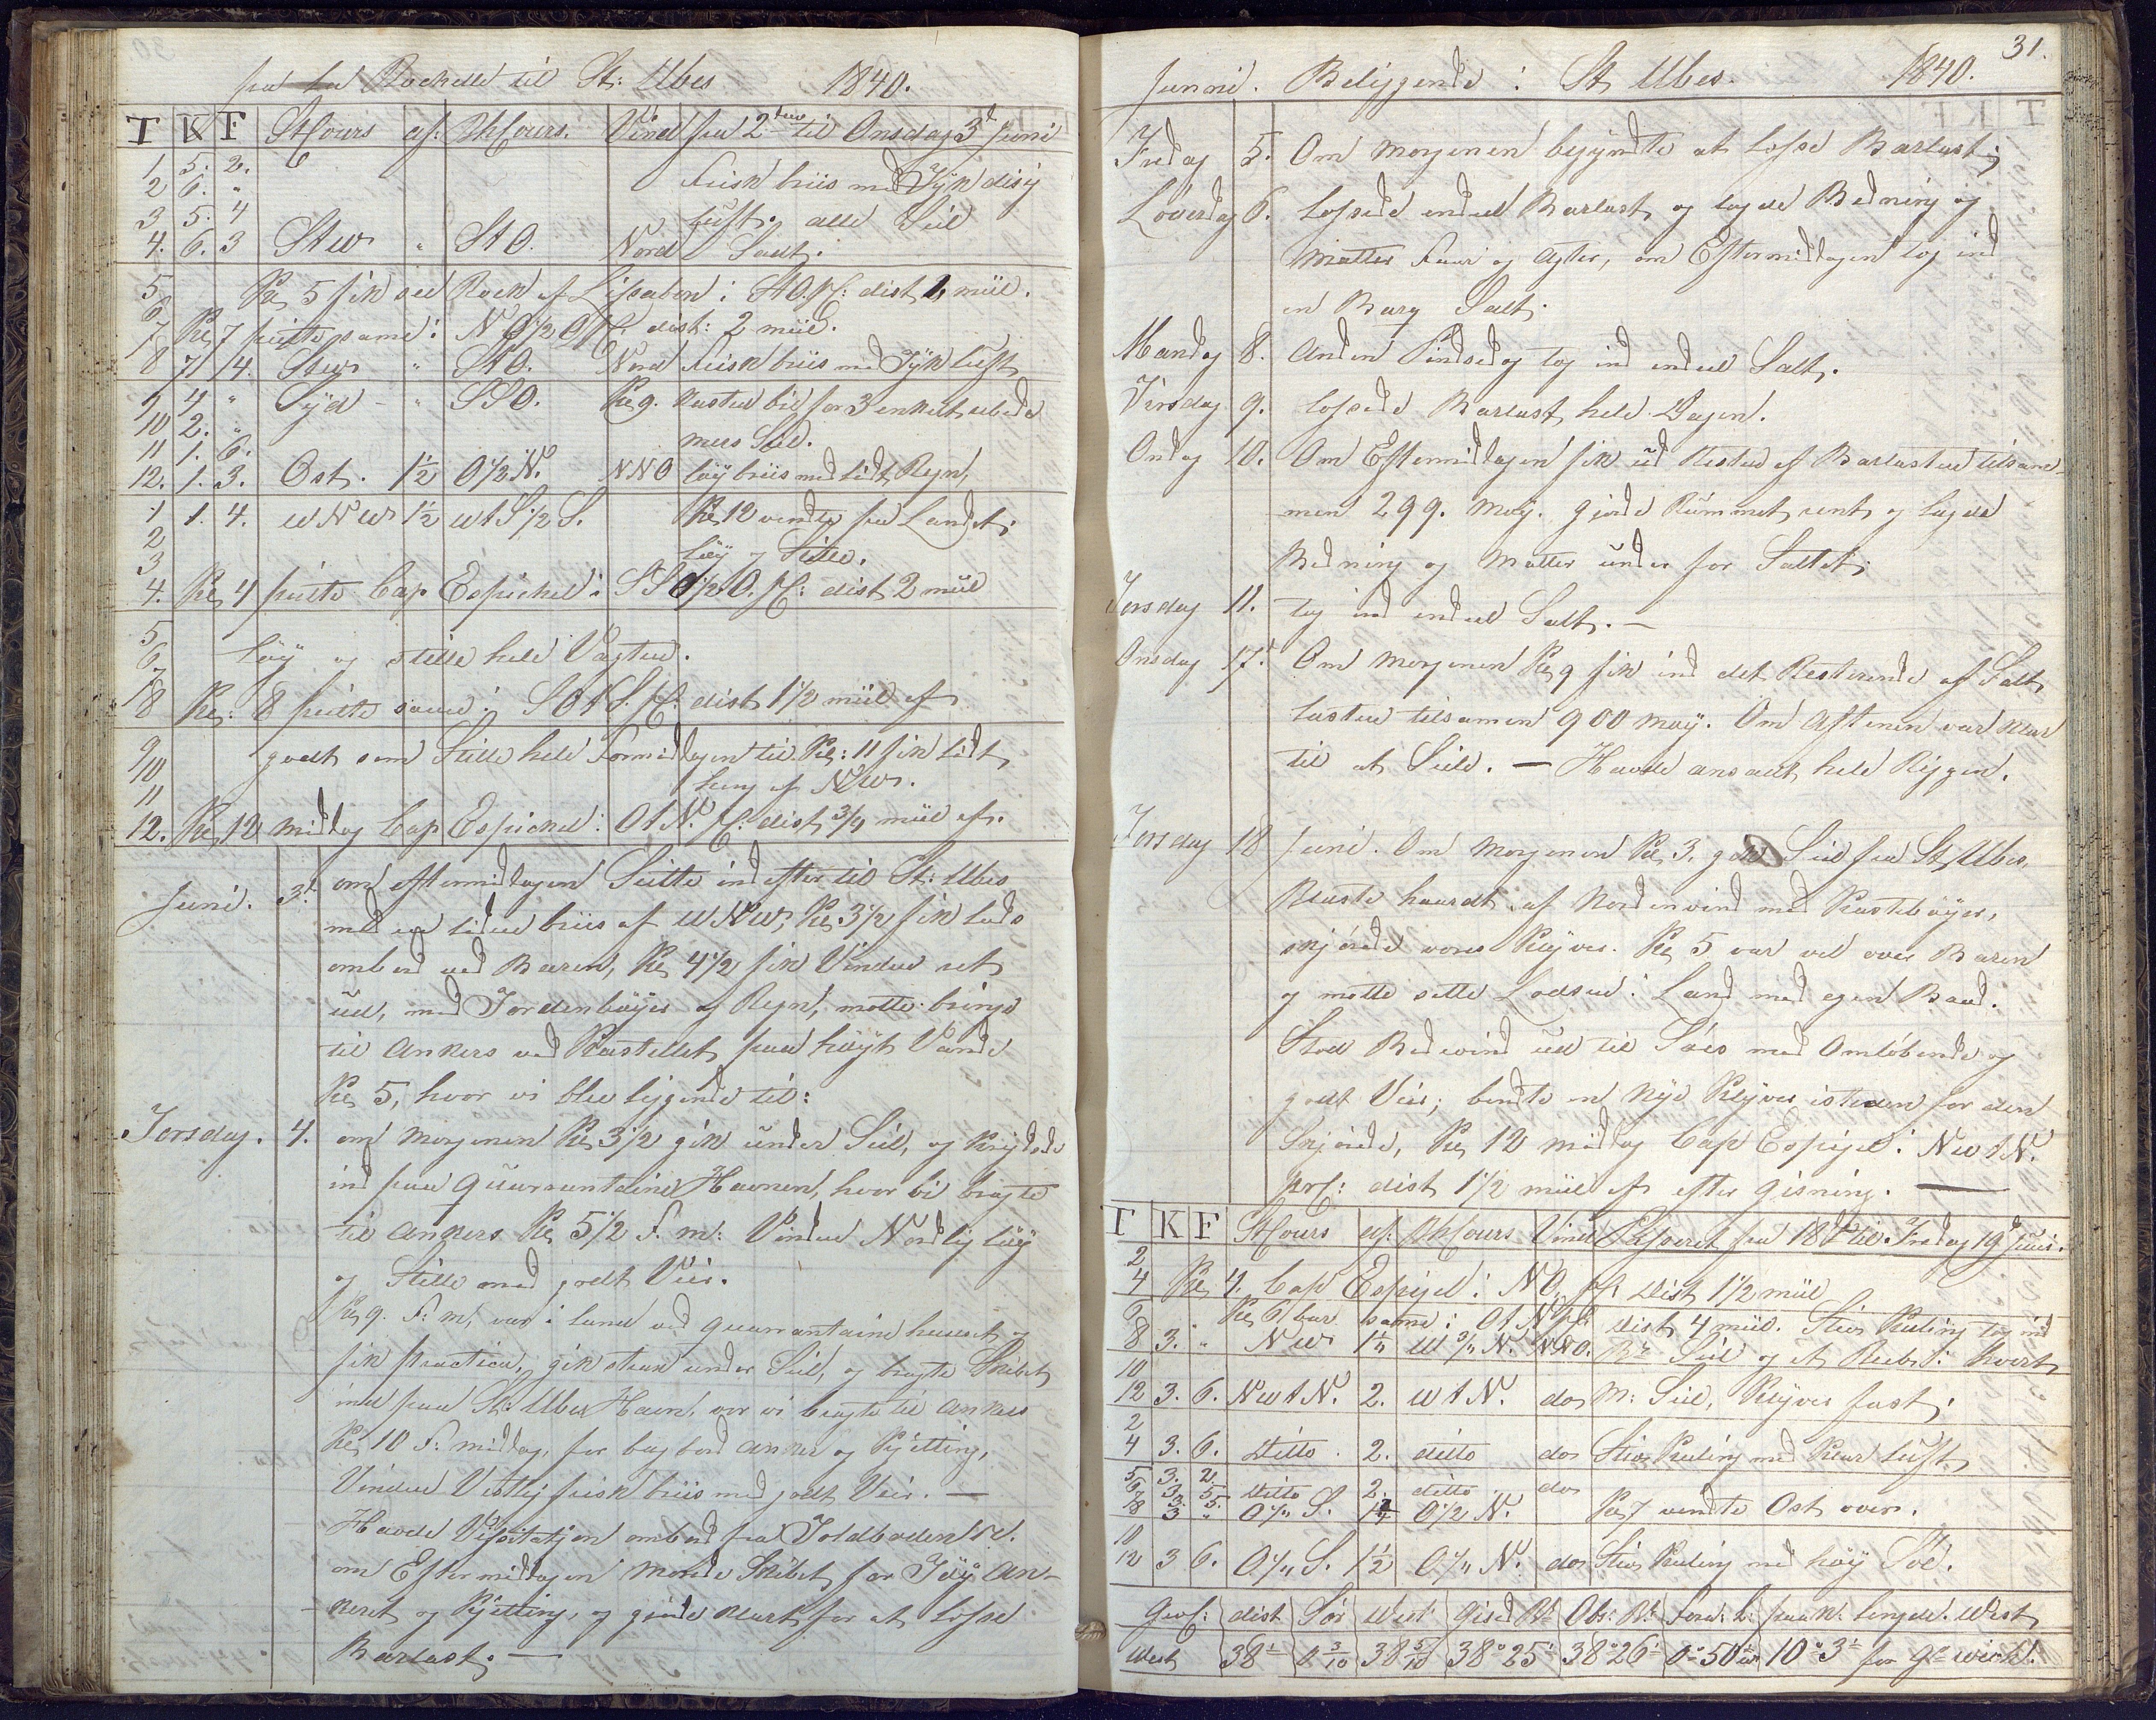 fra La Rochelle til St: Ubes 1840.
T K F StCours af: BhCours. Vind fra 2den til Onsdag 3d Juni
1 5. 2.
2 6. " Frisk briis med Tyk disig
3 5. 4 luft. alle Seil
4. 6. 3 Stw " StO. Nord Sadt.
5 Kl 5 fik see Rock af Lissabon i StO. pC: dist 1, miil.
6
7 Kl 7 peilte same i N O 1/2 O pC: dist: 2 miil.
8 7 4. Stw " StO. Nord Frisk briis med Tyk luft
9 4 " Syd - " SSO. Kl 9.
10 2. "
11 1. 6. mers Seil.
12. 1. 3. Ost. 1½ O½N. NNO løy briis med lidt Regn,
1 1. 4. WNW 1½ WtS½S. Kl 12 vendte fra Landet;
2 løy og Stille.
3
4. Kl 4 peilte Cap Espichel i SSO½O. pC: dist 2 miil
5
6. løy og stille hele Vagten.
7
8 Kl: 8 peilte same i SOtS. pC: dist 1½ miil af
9 godt som Stille hele Formiddagen til Kl: 11 fik lidt
10 luny af NW.
11
12. Kl 12 middag Cap Espichel i OtN. pC: dist ¾ miil af.
Juni. 3d om eftermidagen Seilte ind efter til St: Ubes
med en liden briis af WNW, Kl 3½ fik lods
ombord ved Baren, Kl 4½ fik Vinden ret
ud, med Tordenbøyer og Regn, motte bringe
til ankers ved Kastellet paa høyt Vande
Kl 5, hvor vi blev liggende til:
Torsdag. 4. om morgenen Kl 3½ gik under Seil, og Krydsede
ind paa Quarantaine Havnen, hvor vi bragte
til ankers Kl 5½ F. m: Vinden Nordlig løy
og Stille med godt Veir.
Kl 9. F: m, var i land ved quarantaine huuset og
fik practica, gik strax under Seil, og bragte Skibet
ind paa St: Ubes Havn, vor vi bragte til ankers
Kl 10 F: middag, for bagbord anker og Kjætting,
Vinden Vestlig frisk briis med godt Veir. —
Havde Visitatjon ombord fra Toldboden
om Eftermiddagen morede Skibet for Tøy an-
keret og Kjetting, og gjorde klart for at losse
Barlast. —
31.
Junni. Beliggende i St Ubes. 1840.
Fredag 5. Om morgenen begyndte at losse Barlast;
Løverdag 6. Lossede endeel Barlast og lagde Bedning og
matter Faar og agter, om Eftermiddagen tog ind
en Barg Salt.
Mandag 8. anden Pindsedag tog ind endeel Salt.
Tirsdag 9. lossede Barlast hele Dagen.
Ondag 10. Om Eftermiddagen fik ud Resten af Barlasten tilsam-
men 299. moy. gjorde Rummet rent og lagde
Bedning og Matter under for Saltet;
Torsdag 11. tog ind endeel Salt. —
Onsdag 17. Om morgenen Kl 9 fik ind det Resterende af Salt,
lasten tilsamen 900 moy. Om aftenen var klar
til at Seile. — Havde ansadt hele Riggen.
Torsdag 18 Juni. Om morgenen Kl 3. gik Seil fra St Ubes,
Blaste haardt af Norden vind med Kastebøyer,
skjørede vores Klyver. Kl 5 var vel over Baren
og motte sette Lodsen i Land med egen Baad.
Stod Bedevind ud til Søes med Omløbende og
godt Veir; bendte en nye Klyver isteden for den
Skjørede, Kl 12 middag Cap Espigel i NWtN.
prC: dist 1½ miil af efter gisning. —
T K F StCours af: BhCours Vind Passeret fra 18d til Fredag 19d Juni.
2
4 Kl 4. Cap Espigel i NO, pC dist 1½ miil
6 Kl 6 bar same i OtN pC dist 4 miil. Stiv Kuling tog ind
8 3. " NW 1¼ W¾N. NNO. Br Seil og et Reeb i hvert
10
12 3. 6. NWtN. 2. WtN. do M: Seil, Klyver fast.
2
4 3. 6. ditto 2. ditto do Stiv Kuling med Klar luft
5 3. 2.
6 3. 5. ditto 2. ditto do
7 3. 5.
8 3 " O¼S. O½N. Kl 7 vendte Ost over.
10
12 3 6. O¼S. 1½ O¼N. do Stiv Kuling med høy Søe.
Gicf: dist Sør West Gised Bt Obs: Bt Foran: L: paa V: lengde. West
West 38 0 3/10 38 5/10 38°25' 38°26' 0°50 W 10°3' for Gr wich.